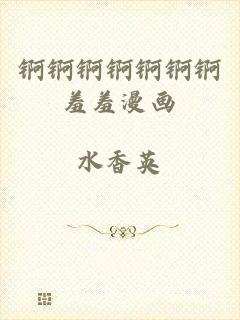 锕锕锕锕锕锕锕
羞羞漫画
水香英